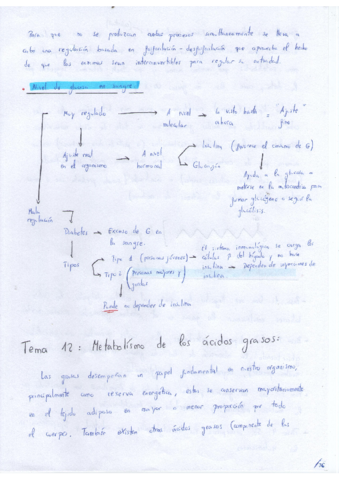 Para que no se produzcan rutas simultáneamente se lleva a
cabo una regulación basada en fosforilación - desfosforilación, que aprovecha el hecho
de que las enzimas sean interconvertibles para regular su actividad.
Nivel de glucosa en sangre:
Muy regulado → A nivel molecular → la vista hasta ahora = Ajuste fino
Ajuste real en el organismo → A nivel hormonal
Insulina (promueve el consumo de G)
Glucagón
Ayuda a la glucosa a meterse en la
para formar glucógeno o seguir la glucólisis
Mala regulación
Diabetes → Exceso de G. en la sangre.
Tipos
Tipo 1 (personas jóvenes) → El sistema inmunológico se carga las células β del
insulina → Dependen de inyecciones de insulina.
Tipo 2 (personas mayores y gordas)
Puede no depender de insulina
Tema 12: Metabolismo de los ácidos grasos:
Las grasas desempeñan un papel fundamental en nuestro organismo,
principalmente como reserva energética, estas se conservan mayoritariamente
en el tejido adiposo en mayor o menor proporción por todo
el cuerpo. También existen otros ácidos grasos (componente de las